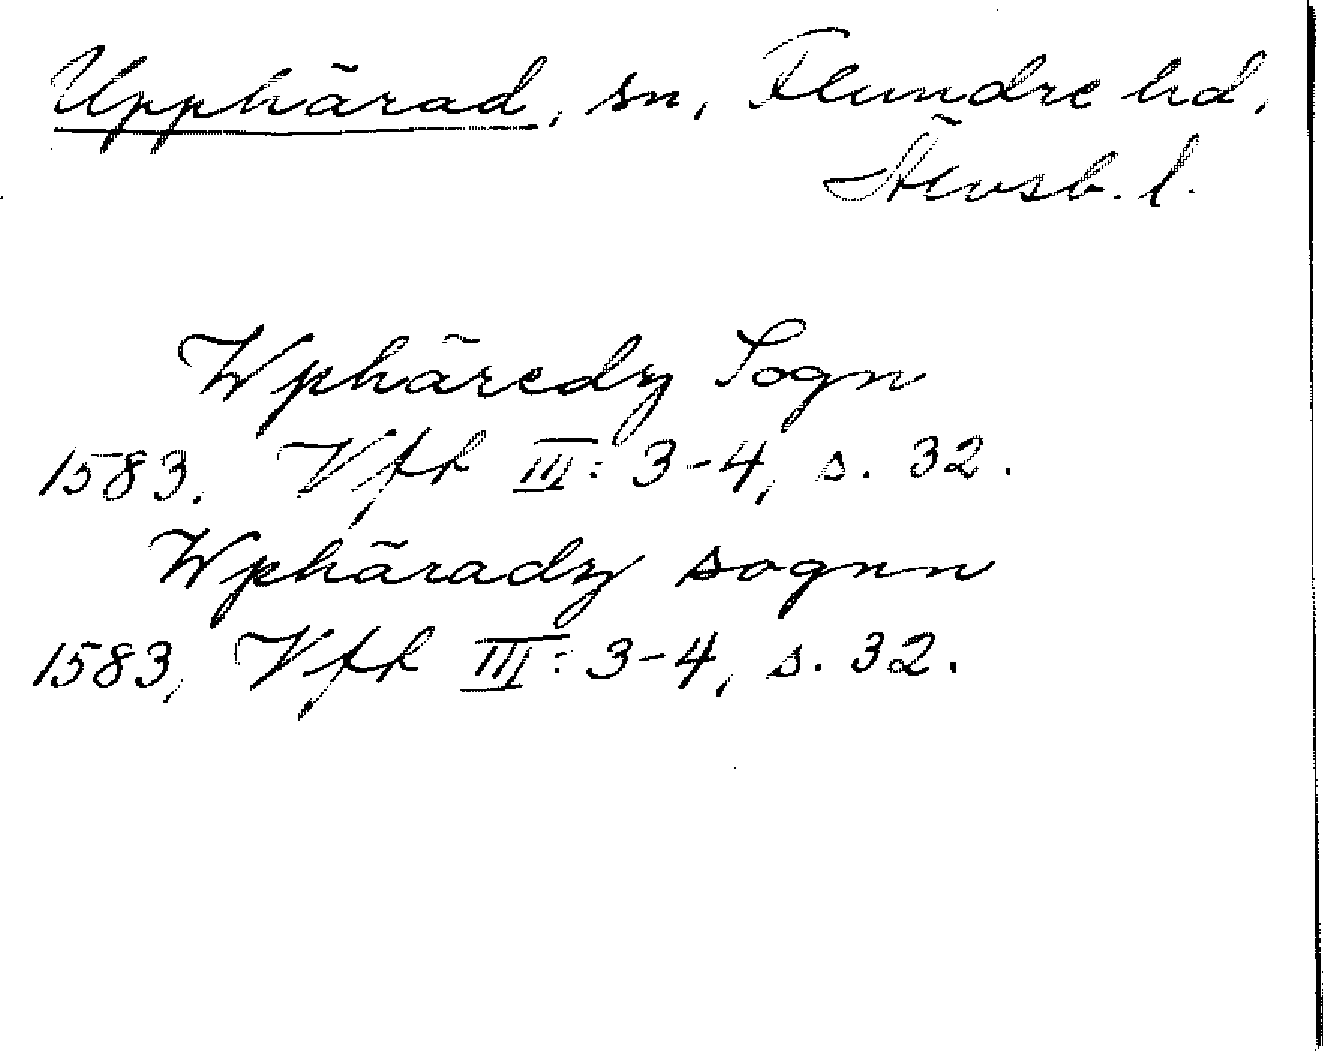 Upphärad, sn, Flundre hd,
Älvsb. l.
Wphäredz Sogn
1583. Vfk III: 3-4, s. 32.
Wphäradz sognn
1583, Vfk III: 3-4, s. 32.